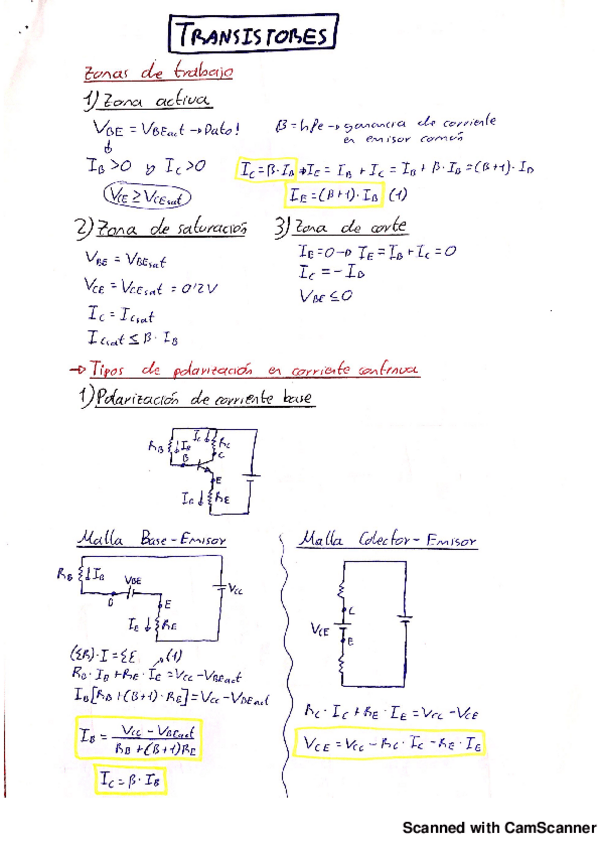 TRANSISTORES
Zonas de trabajo
1) Zona activa
VBE = VBEact → Dato!
β = hfe → ganancia de corriente
en emisor común
IB > 0 y IC > 0
IC = β · IB → IE = IB + IC = IB + β · IB = (β+1) · IB
VCE ≥ VCEsat
IE = (β+1) · IB (1)
2) Zona de saturación
VBE = VBEsat
VCE = VCEsat = 0'2V
IC = ICsat
ICsat ≤ β · IB
3) Zona de corte
IE = 0 → IE = IB + IC = 0
IC = - IB
VBE ≤ 0
→ Tipos de polarización en corriente continua
1) Polarización de corriente base
IC RC
RB IB C
B
E
RE
Malla Base-Emisor
RB IB VBE VCC
B E
IE RE
(ΣR) · I = ΣE (1)
RB · IB + RE · IE = VCC - VBEact
IB [RB + (β+1) · RE] = VCC - VBEact
IB = VCC - VBEact / RB + (β+1) RE
IC = β · IB
Malla Colector-Emisor
C
VCE
E
RC · IC + RE · IE = VCC - VCE
VCE = VCC - RC · IC - RE · IE
Scanned with CamScanner